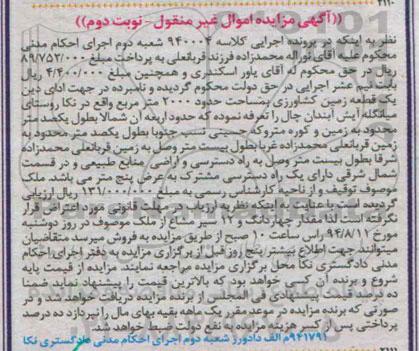 ۲۱۱۰
((آگهی مزایده اموال غیر منقول - نوبت دوم))
نظر به اینکه در پرونده اجرایی کلاسه ۹۴۰۰۰۴ شعبه دوم اجرای احکام مدنی
محکوم علیه آقای نوراله محمدزاده فرزند قربانعلی به پرداخت مبلغ ۸۹/۷۵۲/۰۰۰
ریال در حق محکوم له آقای یاور اسکندری و همچنین مبلغ ۴/۴۰۰/۰۰۰ ریال
بابت نیم عشر اجرایی در حق دولت محکوم گردیده و نامبرده در جهت ادای دین
یک قطعه زمین کشاورزی بمساحت حدود ۲۰۰۰ متر مربع واقع در نکا روستای
میانگله آیش آبندان چال را تعرفه نموده که حدود اربعه آن شمالا بطول یکصد متر
محدود به زمین و کوره متروکه حسینی نسب جنوبا بطول یکصد متر محدود به
زمین قربانعلی محمدزاده غربا بطول بیست متر وصل به زمین قربانعلی محمدزاده
شرقا بطول بیست متر وصل به راه دسترسی و اراضی منابع طبیعی و در قسمت
شمال شرقی دارای یک راه دسترسی مشترک به عرض پنج متر می باشد. ملک
موصوف توقیف و از ناحیه کارشناس رسمی به مبلغ ۱۳۱/۰۰۰/۰۰۰ ریال ارزیابی
گردیده است با عنایت به اینکه نظریه ارزیاب در مهلت قانونی مورد اعتراض قرار
نگرفته است لذا مقدار چهار دانگ و ۱۲ سیر مشاع از ملک موصوف در روز دوشنبه
مورخ ۹۴/۸/۱۲ راس ساعت ۱۰ صبح از طریق مزایده به فروش میرسد متقاضیان
میتوانند جهت اطلاع بیشتر پنج روز قبل از برگزاری مزایده به دفتر اجرای احکام
مدنی دادگستری نکا محل برگزاری مزایده مراجعه نمایند. مزایده از قیمت پایه
شروع و برنده آن کسی خواهد بود که بالاترین قیمت را پیشنهاد نماید. ضمنا
ده درصد قیمت پیشنهادی فی المجلس از برنده مزایده دریافت خواهد شد و در
صورتی که برنده مزایده در موعد مقرر یک ماهه بقیه بهای مال را نپردازد ده درصد
پرداختی پس از کسر هزینه مزایده به نفع دولت ضبط خواهد شد.
۹۴۱۷۹۱م الف دادورز شعبه دوم اجرای احکام مدنی دادگستری نکا
۲۱۱۱